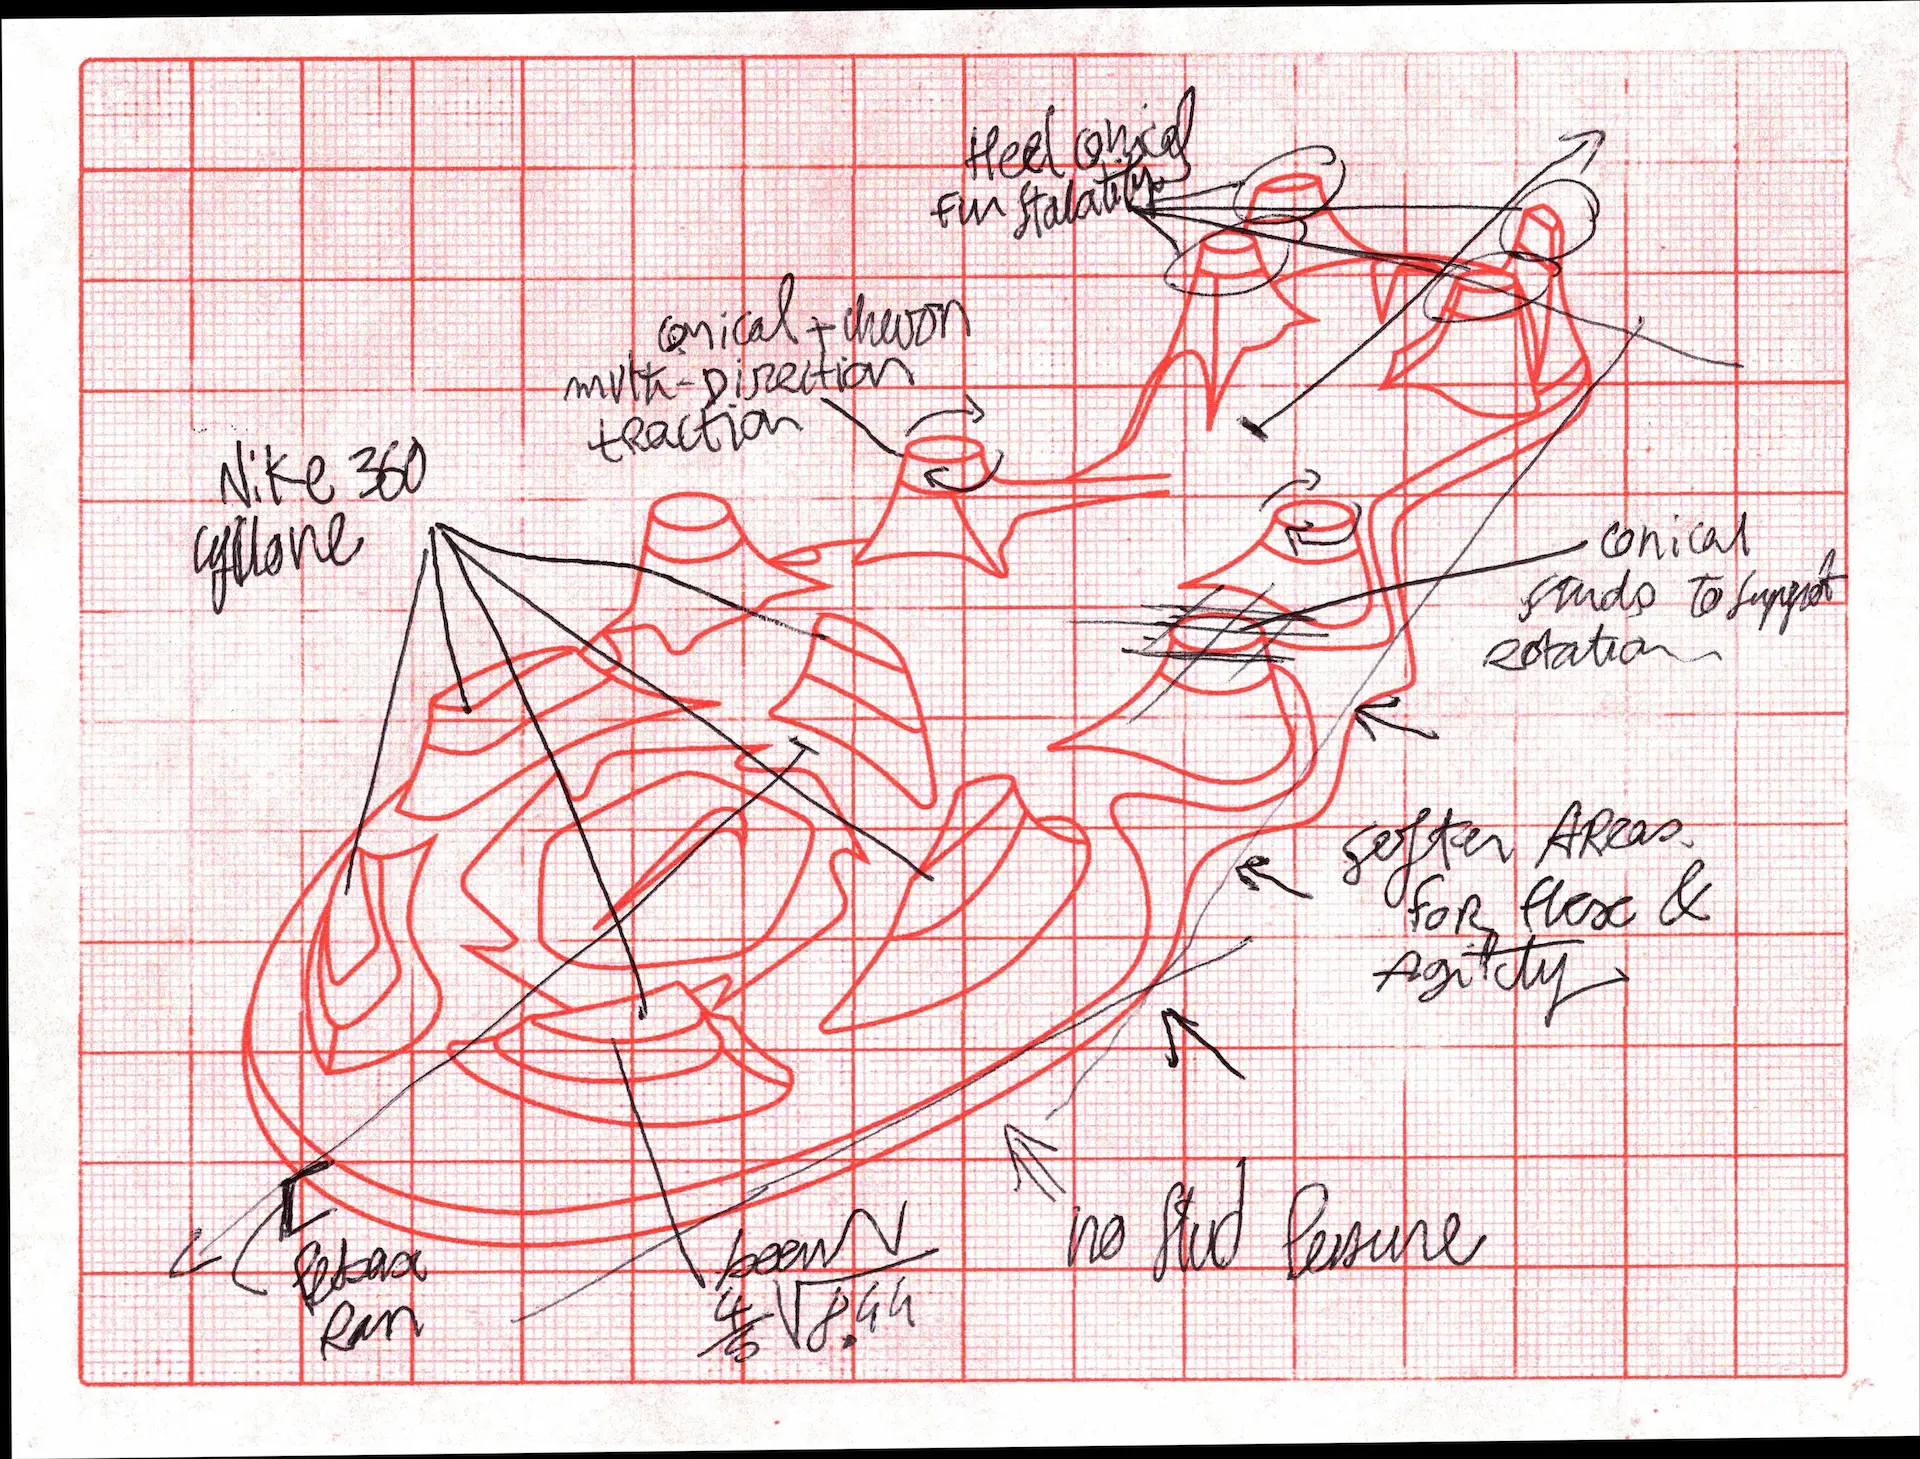 Heel conical
Fur Stalatity
conical + chevron
multi-Direction
traction
Nike 360
cyllone
conical
studs To Support
rotation
softer Areas
for flex &
Agility
no Stud Pressure
Ran